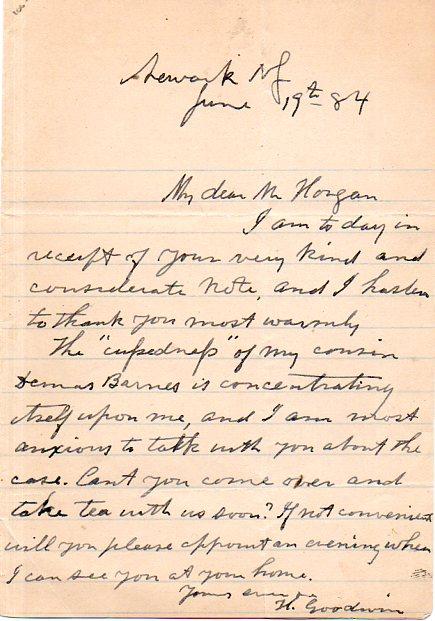 Newark NJ
June 19th 84
My dear Mr Horgan
I am to day in
receipt of your very kind and
considerate note, and I hasten
to thank you most warmly
The "cussedness" of my cousin
Demas Barnes is concentrating
itself upon me, and I am most
anxious to talk with you about the
case. Cant you come over and
take tea with us soon? If not convenient
will you please appoint an evening when
I can see you at your home.
Yours
H. Goodwin